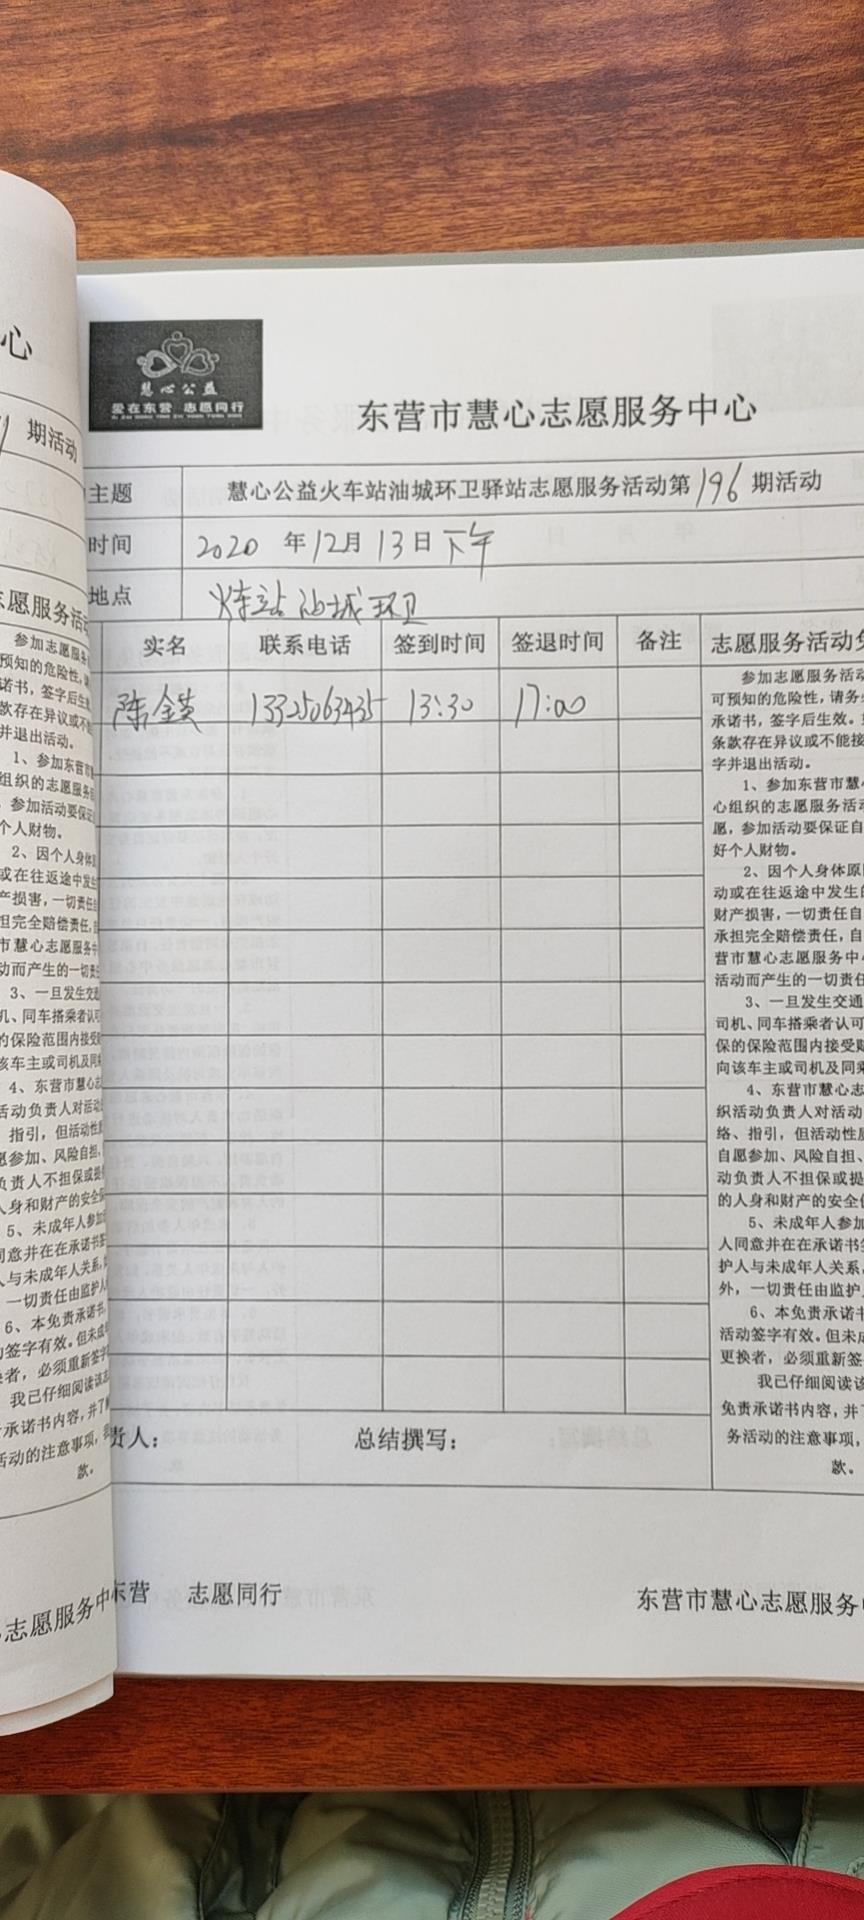 心
期活动
志愿服务活动
参加志愿服务
预知的危险性，请
诺书，签字后生
款存在异议或不能
并退出活动。
1、参加东营市
组织的志愿服务
参加活动要保证
个人财物。
2、因个人身体原
或在往返途中发生
产损害，一切责任
担完全赔偿责任，自
市慧心志愿服务中
动而产生的一切责任
3、一旦发生交通
机、同车搭乘者认可
的保险范围内接受赔
该车主或司机及同乘
4、东营市慧心志
活动负责人对活动
指引，但活动性质
愿参加、风险自担，
负责人不担保或提
人身和财产的安全保
5、未成年人参加
同意并在在承诺书签
人与未成年人关系，
一切责任由监护人
6、本免责承诺书，
动签字有效。但未成年
换者，必须重新签字
我已仔细阅读该
承诺书内容，并了解
活动的注意事项，
款。
志愿服务中
慧心公益
爱在东营 志愿同行
东营市慧心志愿服务中心
主题 慧心公益火车站油城环卫驿站志愿服务活动第196期活动
时间 2020 年12月13日下午
地点 火车站油城环卫
实名 联系电话 签到时间 签退时间 备注
陈金英 13325063435 13:30 17:00
责人： 总结撰写：
志愿服务活动免
参加志愿服务活动
可预知的危险性，请务必
承诺书，签字后生效。
条款存在异议或不能接
字并退出活动。
1、参加东营市慧
心组织的志愿服务活动
愿，参加活动要保证自
好个人财物。
2、因个人身体原因
动或在往返途中发生的
财产损害，一切责任自
承担完全赔偿责任，自
营市慧心志愿服务中心
活动而产生的一切责任
3、一旦发生交通
司机、同车搭乘者认可
保的保险范围内接受赔
向该车主或司机及同乘
4、东营市慧心志
织活动负责人对活动
络、指引，但活动性质
自愿参加、风险自担、
动负责人不担保或提
的人身和财产的安全保
5、未成年人参加
人同意并在在承诺书签
护人与未成年人关系，
外，一切责任由监护人
6、本免责承诺书
活动签字有效。但未成
更换者，必须重新签
我已仔细阅读该
免责承诺书内容，并了
务活动的注意事项，
款。
东营 志愿同行
东营市慧心志愿服务中